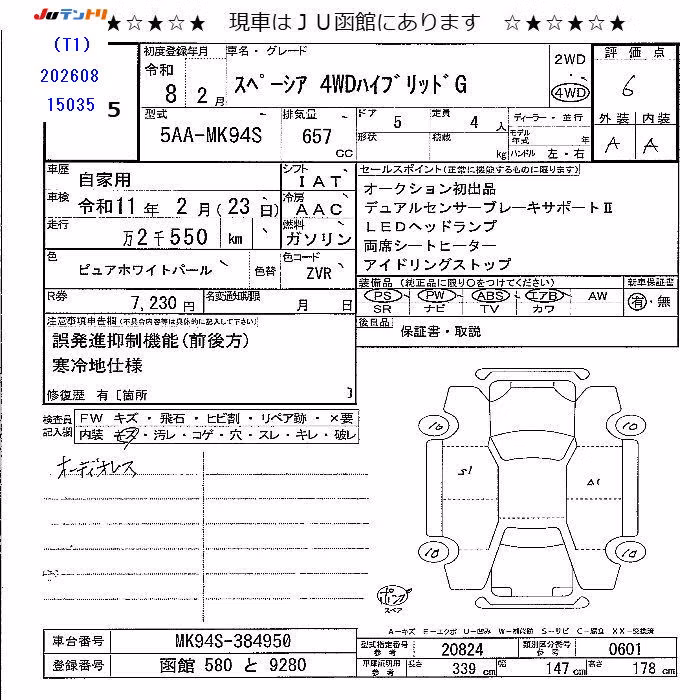 JUテントリ
★☆★☆★　現車はＪＵ函館にあります　☆★☆★☆
(T1)
202608
15035
5
初度登録年月
令和
8 2 月
車名・グレード
スペーシア 4WDハイブリッドG
2WD
4WD
評価点
6
型式
5AA-MK94S
排気量
657
CC
ドア
5
定員
4 人
形状
積載
kg
ディーラー・並行
モデル年式
年
ハンドル 左・右
外装 内装
A A
車歴
自家用
シフト
IAT
車検
令和11 年 2 月(23 日)
冷房
AAC
走行
万2千550 km
燃料
ガソリン
色
ピュアホワイトパール
色替
色コード
ZVR
R券
7,230円
名変通知期限
月 日
セールスポイント(正常に機能するものに限ります)
オークション初出品
デュアルセンサーブレーキサポートⅡ
ＬＥＤヘッドランプ
両席シートヒーター
アイドリングストップ
装備品 (純正品に限り○をつけてください)
PS PW ABS エアB AW
SR ナビ TV カワ
新車保証書
有・無
後日品
保証書・取説
注意事項申告欄(不具合内容等は具体的に記入して下さい)
誤発進抑制機能(前後方)
寒冷地仕様
修復歴 有 [箇所 ]
検査員記入欄
FW キズ・飛石・ヒビ割・リペア跡・×要
内装 キズ・汚レ・コゲ・穴・スレ・キレ・破レ
オーディオレス
10
10
S1
A1
10
10
パンク
スペア
A－キズ E－エクボ U－凹み W－補修跡 S－サビ C－腐食 XX－交換済
車台番号
MK94S-384950
登録番号
函館 580 と 9280
型式指定番号
参考
20824
類別区分番号
参考
0601
車庫証明用
参考
長さ
339 cm
幅
147 cm
高さ
178 cm